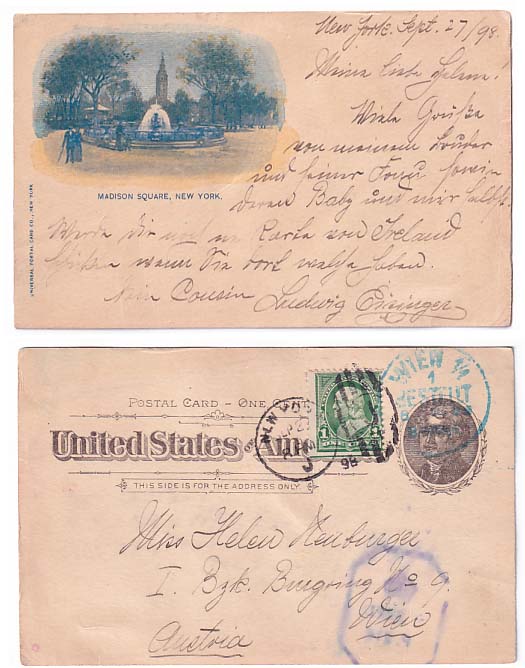 New York. Sept. 27/98.
Meine liebe Helene!
Viele Grüße
von meinem Bruder
und seiner Frau sowie
deren Baby und mir selbst.
Werde dir noch ne Karte von Ireland
schicken wenn Sie dort welche haben.
Dein Cousin Ludwig
MADISON SQUARE, NEW YORK.
UNIVERSAL POSTAL CARD CO., NEW YORK
POSTAL CARD – ONE
United States of Ame
THIS SIDE IS FOR THE ADDRESS ONLY.
NEW YO
98
WIEN 1/1
BESTELLT
Miss Helen Neuburger
I. Bzk. Burgring No 9.
Wien
Austria